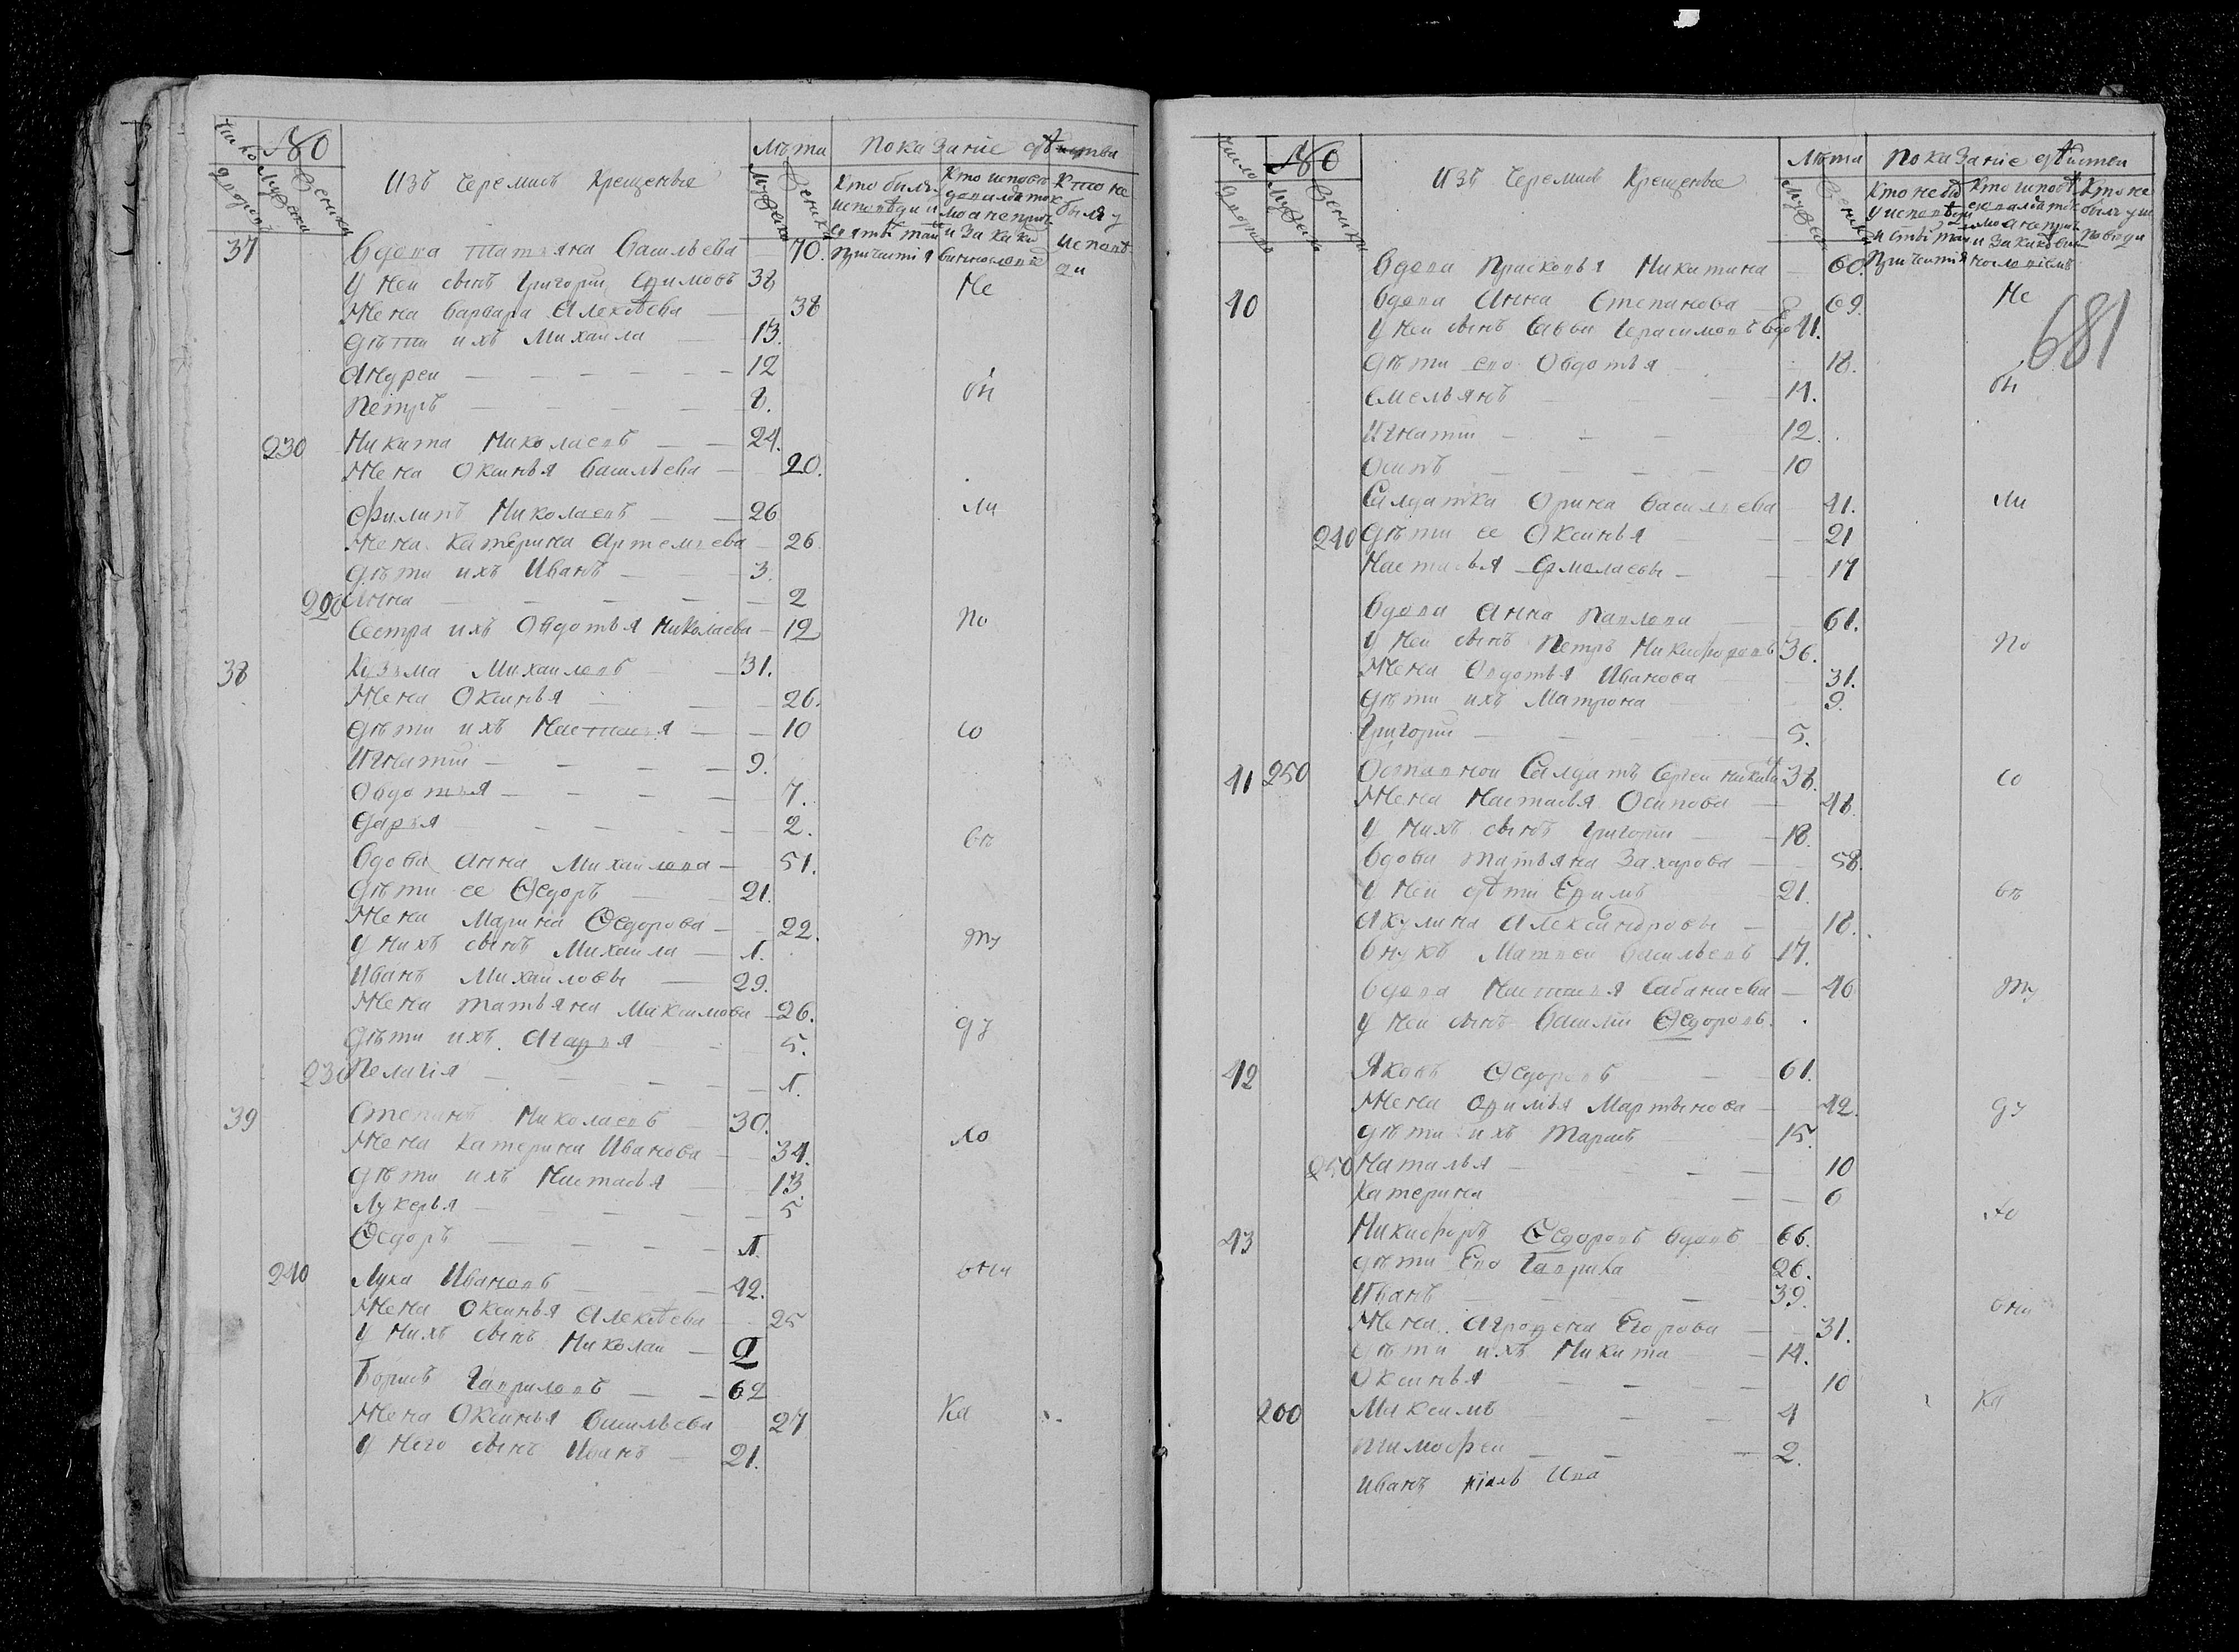 число дворовъ
№
Мужеска
Женска
Изъ черемисъ крещеные
Лѣта
Мужеска
Женска
Показаніе дѣйства
Кто былъ у исповѣди и святыхъ таинъ причастія
Кто исповѣдовался токмо а не причастился и за какимъ винословіемъ
Кто не былъ у исповѣди
37 Вдова Татьяна Васильева 70.
У ней сынъ Григорий Ефимовъ 38
Жена Варвара Алексѣева — 38
дѣти ихъ Михайла — 13.
Андреи — 12
Петръ — 8.
230 Никита Николаевъ — 24.
Жена Оксинья Васильева — 20.
Филипъ Николаевъ — 26
Жена Катерина Артемьева — 26
дѣти ихъ Иванъ — 3.
220 Анна — 2
Сестра ихъ Овдотья Николаева — 12
38 Кузьма Михаиловъ — 31.
Жена Оксинья — 26.
дѣти ихъ Настасья — 10
Игнатии — 9.
Овдотья — 7.
Дарья — 2.
Вдова Анна Михаилова — 51.
дѣти ее Ѳедоръ — 21.
Жена Марина Ѳедорова — 22.
У нихъ сынъ Михаила — 1.
Иванъ Михаиловы — 29.
Жена Татьяна Максимова — 26.
дѣти ихъ Агафья — 5.
230 Пелагія — 1.
39 Степанъ Николаевъ 30.
Жена Катерина Иванова — 34.
дѣти ихъ Настасья — 13.
Лукерья — 5
Ѳедоръ — 1.
240 Лука Ивановъ — 42.
Жена Оксинья Алексѣева — 25
У нихъ сынъ Николаи — 2
Борисъ Гавриловъ — 62
Жена Оксинья Васильева 27
У него сынъ Иванъ — 21.
Не
бы
ли
по
со
вѣ
ту
ду
хо
вни
ка
число дворовъ
№
Мужеска
Женска
Изъ черемисъ крещеные
Лѣта
Мужеска
Женска
Показаніе дѣйства
681
Вдова Прасковья Никитина — 60.
40 Вдова Анна Степанова 69.
У ней сынъ Савва Герасимовъ вдо 41.
дѣти его Овдотья 18.
Емельянъ — 14.
Игнатии — 12.
Осипъ — 10
Салдатка Орина Васильева 41.
240 дѣти ее Оксинья — 21
Настасья Ермолаевы — 17
Вдова Анна Павлова 61.
У ней сынъ Петръ Никифоровъ 36.
Жена Овдотья Иванова 31.
дѣти ихъ Матрона 9.
Григорий — 5.
41 250 Отставной Салдатъ Сергеи Никит 38.
Жена Настасья Осипова — 48
У нихъ сынъ Григории — 18.
Вдова Татьяна Захарова — 58.
У ней дѣти Ефимъ 21.
Акулина Александровы — 18.
Внукъ Матвеи Васильевъ 17.
Вдова Настасья Сабанаева — 40
У ней сынъ Василии Ѳедоровъ.
42 Яковъ Ѳедоровъ — 61.
Жена Офимья Мартынова — 42.
дѣти ихъ Тарасъ 15.
250 Наталья — 10
Катерина — 6
43 Никифоръ Ѳедоровъ вдовъ 66.
дѣти Его Гаврила 26.
Иванъ — 39.
Жена Агрофена Егорова — 31.
дѣти ихъ Никита — 14.
Оксинья — 10
260 Максимъ — 4
Тимофеи — 2.
Не
бы
ли
по
со
вѣ
ту
ду
хо
вни
ка